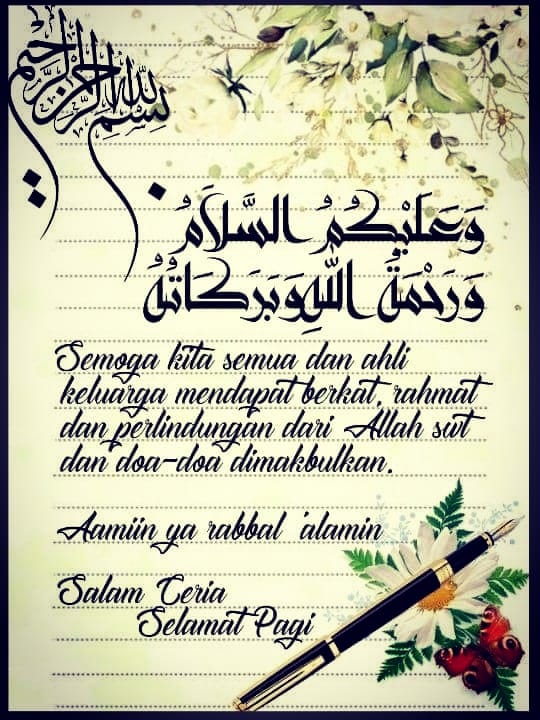 بسم الله الرحمن الرحيم
وَعَلَيْكُمُ السَّلَامُ
وَرَحْمَةُ اللهِ وَبَرَكَاتُهُ
Semoga kita semua dan ahli
keluarga mendapat berkat, rahmat
dan perlindungan dari Allah swt
dan doa-doa dimakbulkan.
Aamiin ya rabbal 'alamin
Salam Ceria
Selamat Pagi